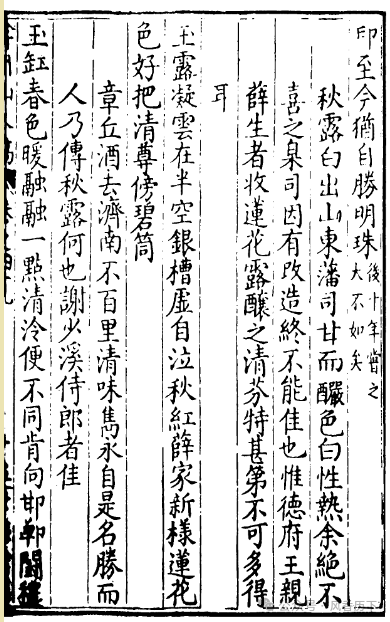 印至今猶自勝明珠後十年嘗之
大不如矣
秋露白出山東藩司甘而釅色白性熱余絕不
喜之臬司因有改造終不能佳也惟德府王親
薛生者收蓮花露釀之清芬特甚第不可多得
耳
玉露凝雲在半空銀槽虛自泣秋紅薛家新樣蓮花
色好把清尊傍碧筒
章丘酒去濟南不百里清味雋永自是名勝而
人乃傳秋露何也謝少溪侍郎者佳
玉缸春色暖融融一點清泠便不同肯向邯鄲鬪